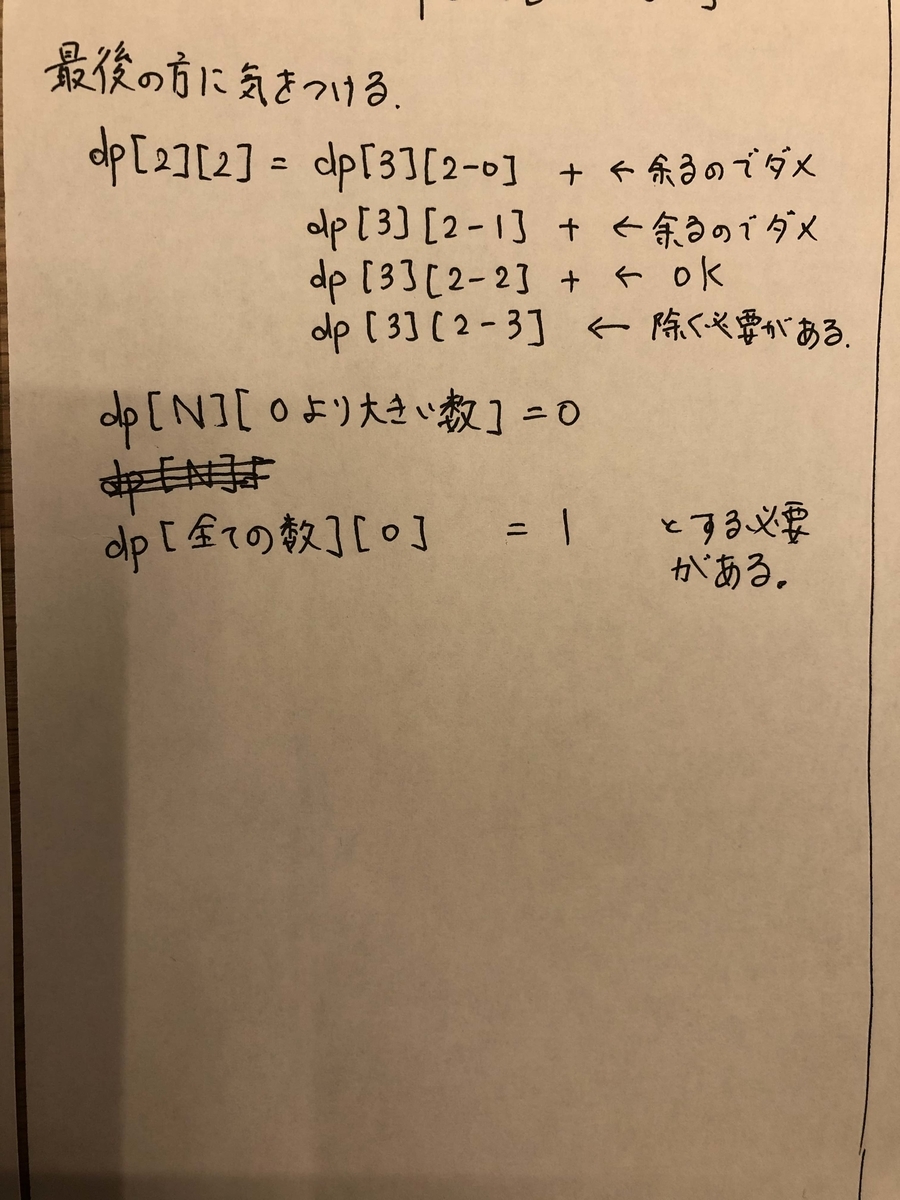 最後の方に気をつける.
dp[2][2] = dp[3][2-0] + ← 余るのでダメ
dp[3][2-1] + ← 余るのでダメ
dp[3][2-2] + ← OK
dp[3][2-3] ← 除く必要がある.
dp[N][0より大きい数] = 0
dp[N][
dp[全ての数][0] = 1 とする必要
がある。